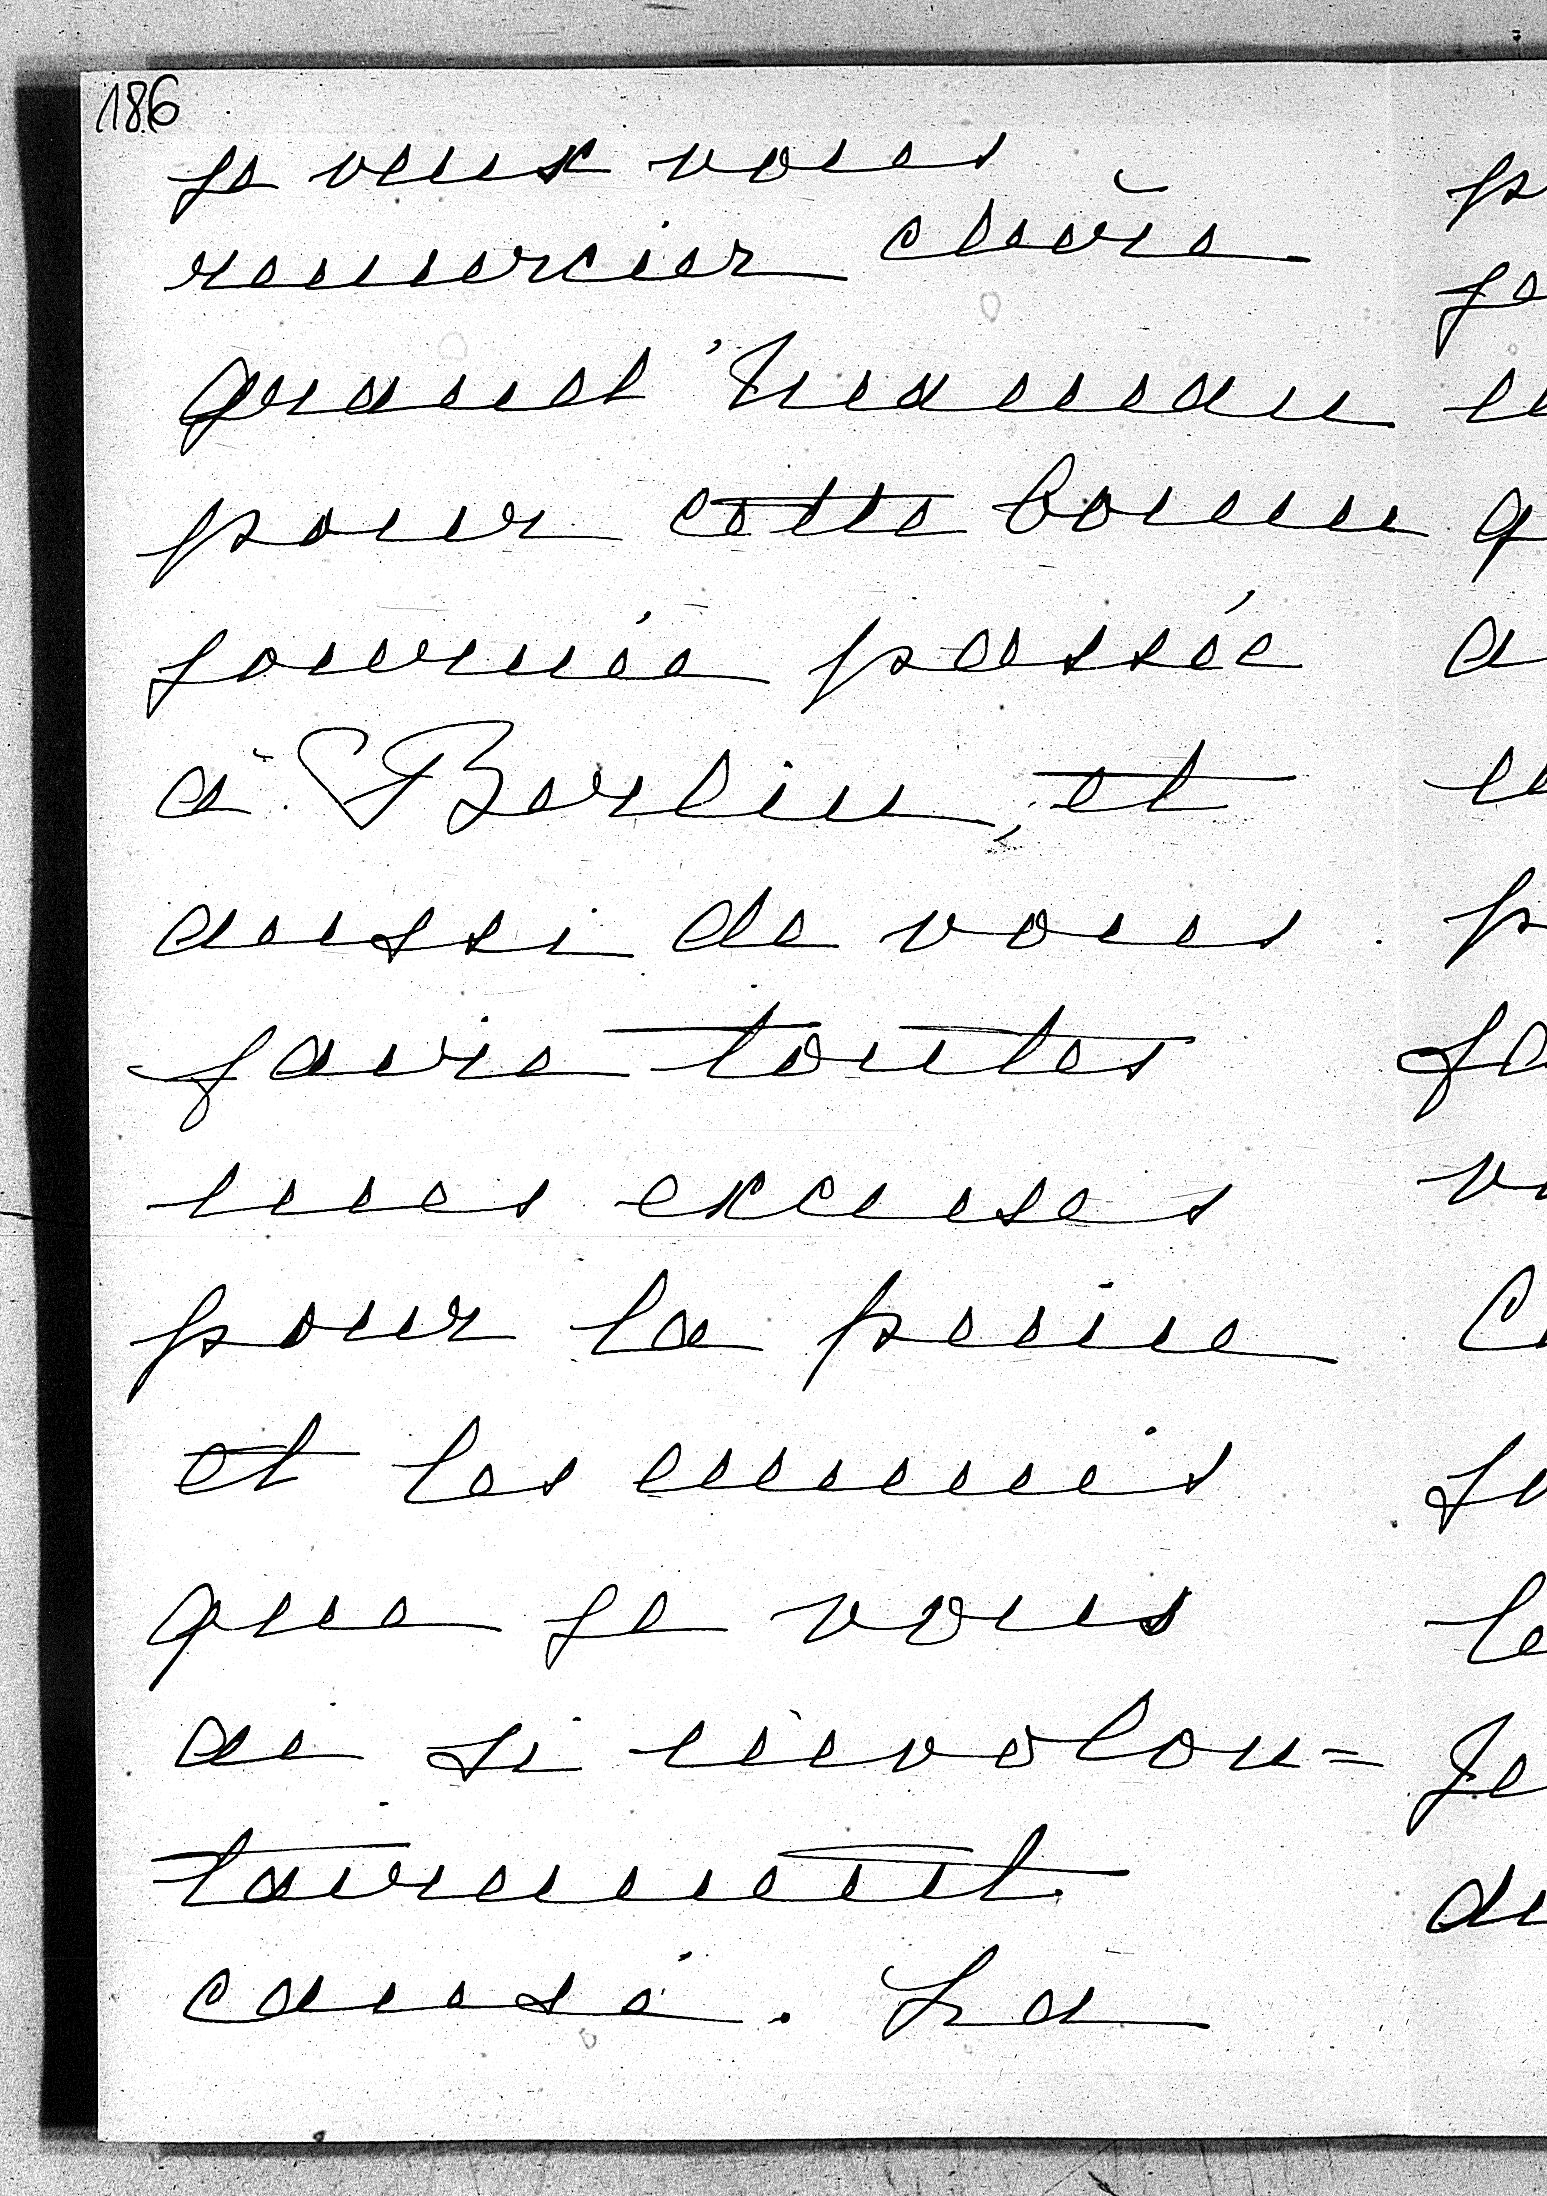 186
je veux vous
remercier chère
grand'maman
pour cette bonne
journée passée
à Berlin, et
aussi de vous
faire toutes
mes excuses
pour la peine
et les ennuis
que je vous
ai si involon=
tairement
causé. La